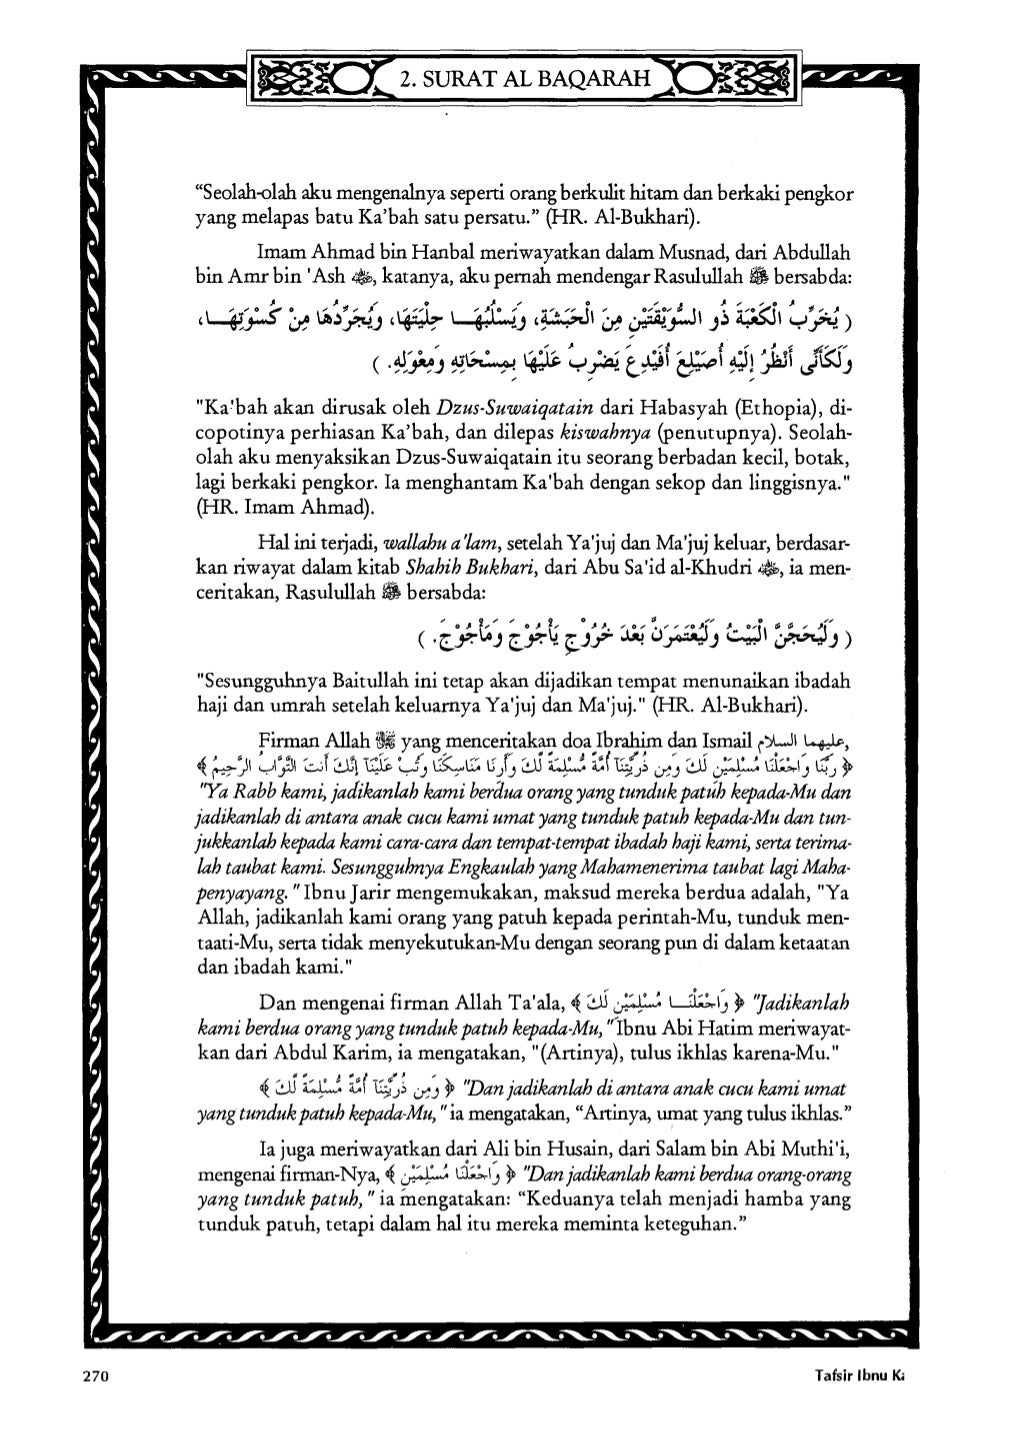 2. SURAT AL BAQARAH
“Seolah-olah aku mengenalnya seperti orang berkulit hitam dan berkaki pengkor
yang melapas batu Ka’bah satu persatu.” (HR. Al-Bukhari).
Imam Ahmad bin Hanbal meriwayatkan dalam Musnad, dari Abdullah
bin Amr bin 'Ash ؓ, katanya, aku pernah mendengar Rasulullah ﷺ bersabda:
( يُخَرِّبُ الْكَعْبَةَ ذُو السُّوَيْقَتَيْنِ مِنَ الْحَبَشَةِ، وَيَسْلُبُهَا حِلْيَتَهَا، وَيُجَرِّدُهَا مِنْ كُسْوَتِهَا،
وَلَكَأَنِّى أَنْظُرُ إِلَيْهِ أُصَيْلِعَ أُفَيْدِعَ يَضْرِبُ عَلَيْهَا بِمِسْحَاتِهِ وَمِعْوَلِهِ. )
"Ka'bah akan dirusak oleh Dzus-Suwaiqatain dari Habasyah (Ethopia), di-
copotinya perhiasan Ka’bah, dan dilepas kiswahnya (penutupnya). Seolah-
olah aku menyaksikan Dzus-Suwaiqatain itu seorang berbadan kecil, botak,
lagi berkaki pengkor. Ia menghantam Ka'bah dengan sekop dan linggisnya."
(HR. Imam Ahmad).
Hal ini terjadi, wallahu a'lam, setelah Ya'juj dan Ma'juj keluar, berdasar-
kan riwayat dalam kitab Shahih Bukhari, dari Abu Sa'id al-Khudri ؓ, ia men-
ceritakan, Rasulullah ﷺ bersabda:
( وَلَيُحَجَّنَّ الْبَيْتُ وَلَيُعْتَمَرَنَّ بَعْدَ خُرُوْجِ يَأْجُوْجَ وَمَأْجُوْجَ. )
"Sesungguhnya Baitullah ini tetap akan dijadikan tempat menunaikan ibadah
haji dan umrah setelah keluarnya Ya'juj dan Ma'juj." (HR. Al-Bukhari).
Firman Allah ﷻ yang menceritakan doa Ibrahim dan Ismail عليهما السلام,
﴿ رَبَّنَا وَاجْعَلْنَا مُسْلِمَيْنِ لَكَ وَمِن ذُرِّيَّتِنَا أُمَّةً مُّسْلِمَةً لَّكَ وَأَرِنَا مَنَاسِكَنَا وَتُبْ عَلَيْنَا إِنَّكَ أَنتَ التَّوَّابُ الرَّحِيمُ ﴾
"Ya Rabb kami, jadikanlah kami berdua orang yang tunduk patuh kepada-Mu dan
jadikanlah di antara anak cucu kami umat yang tunduk patuh kepada-Mu dan tun-
jukkanlah kepada kami cara-cara dan tempat-tempat ibadah haji kami, serta terima-
lah taubat kami. Sesungguhnya Engkaulah yang Mahamenerima taubat lagi Maha-
penyayang." Ibnu Jarir mengemukakan, maksud mereka berdua adalah, "Ya
Allah, jadikanlah kami orang yang patuh kepada perintah-Mu, tunduk men-
taati-Mu, serta tidak menyekutukan-Mu dengan seorang pun di dalam ketaatan
dan ibadah kami."
Dan mengenai firman Allah Ta'ala, ﴿ وَاجْعَلْنَا مُسْلِمَيْنِ لَكَ ﴾ "Jadikanlah
kami berdua orang yang tunduk patuh kepada-Mu," Ibnu Abi Hatim meriwayat-
kan dari Abdul Karim, ia mengatakan, "(Artinya), tulus ikhlas karena-Mu."
﴿ وَمِن ذُرِّيَّتِنَا أُمَّةً مُّسْلِمَةً لَّكَ ﴾ "Dan jadikanlah di antara anak cucu kami umat
yang tunduk patuh kepada-Mu," ia mengatakan, “Artinya, umat yang tulus ikhlas.”
Ia juga meriwayatkan dari Ali bin Husain, dari Salam bin Abi Muthi'i,
mengenai firman-Nya, ﴿ وَاجْعَلْنَا مُسْلِمَيْنِ ﴾ "Dan jadikanlah kami berdua orang-orang
yang tunduk patuh," ia mengatakan: “Keduanya telah menjadi hamba yang
tunduk patuh, tetapi dalam hal itu mereka meminta keteguhan.”
270
Tafsir Ibnu